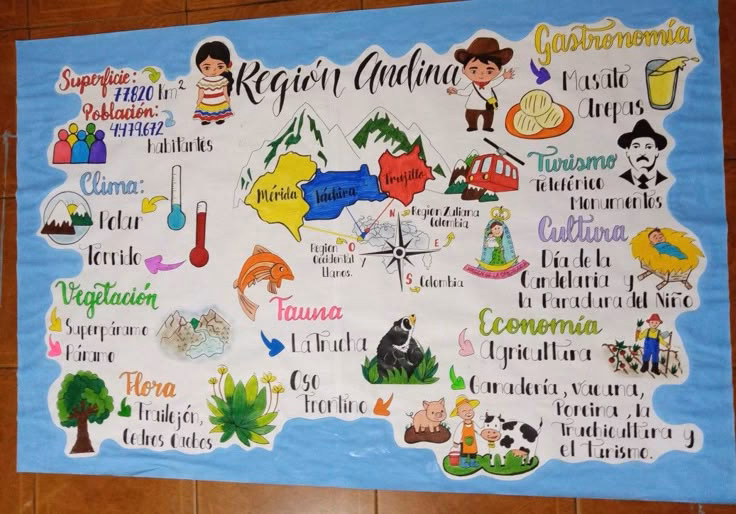 Región Andina
Superficie:
77.820 km²
Población:
4479.672
habitantes
Clima:
Polar
Tórrido
Vegetación
Superpáramo
Páramo
Flora
Frailejón,
Cedros Ocobos
Mérida
Táchira
Trujillo
N
Región Zuliana
Colombia
O
E
Región
Occidental
Llanos.
S
Colombia
Fauna
La Trucha
Oso
Frontino
Gastronomía
Masato
Arepas
Turismo
Teleférico
Monumentos
Cultura
Día de la
Candelaria y
la Paradura del Niño
Economía
Agricultura
Ganadería, vacuna,
Porcina, la
Truchicultura y
el Turismo.